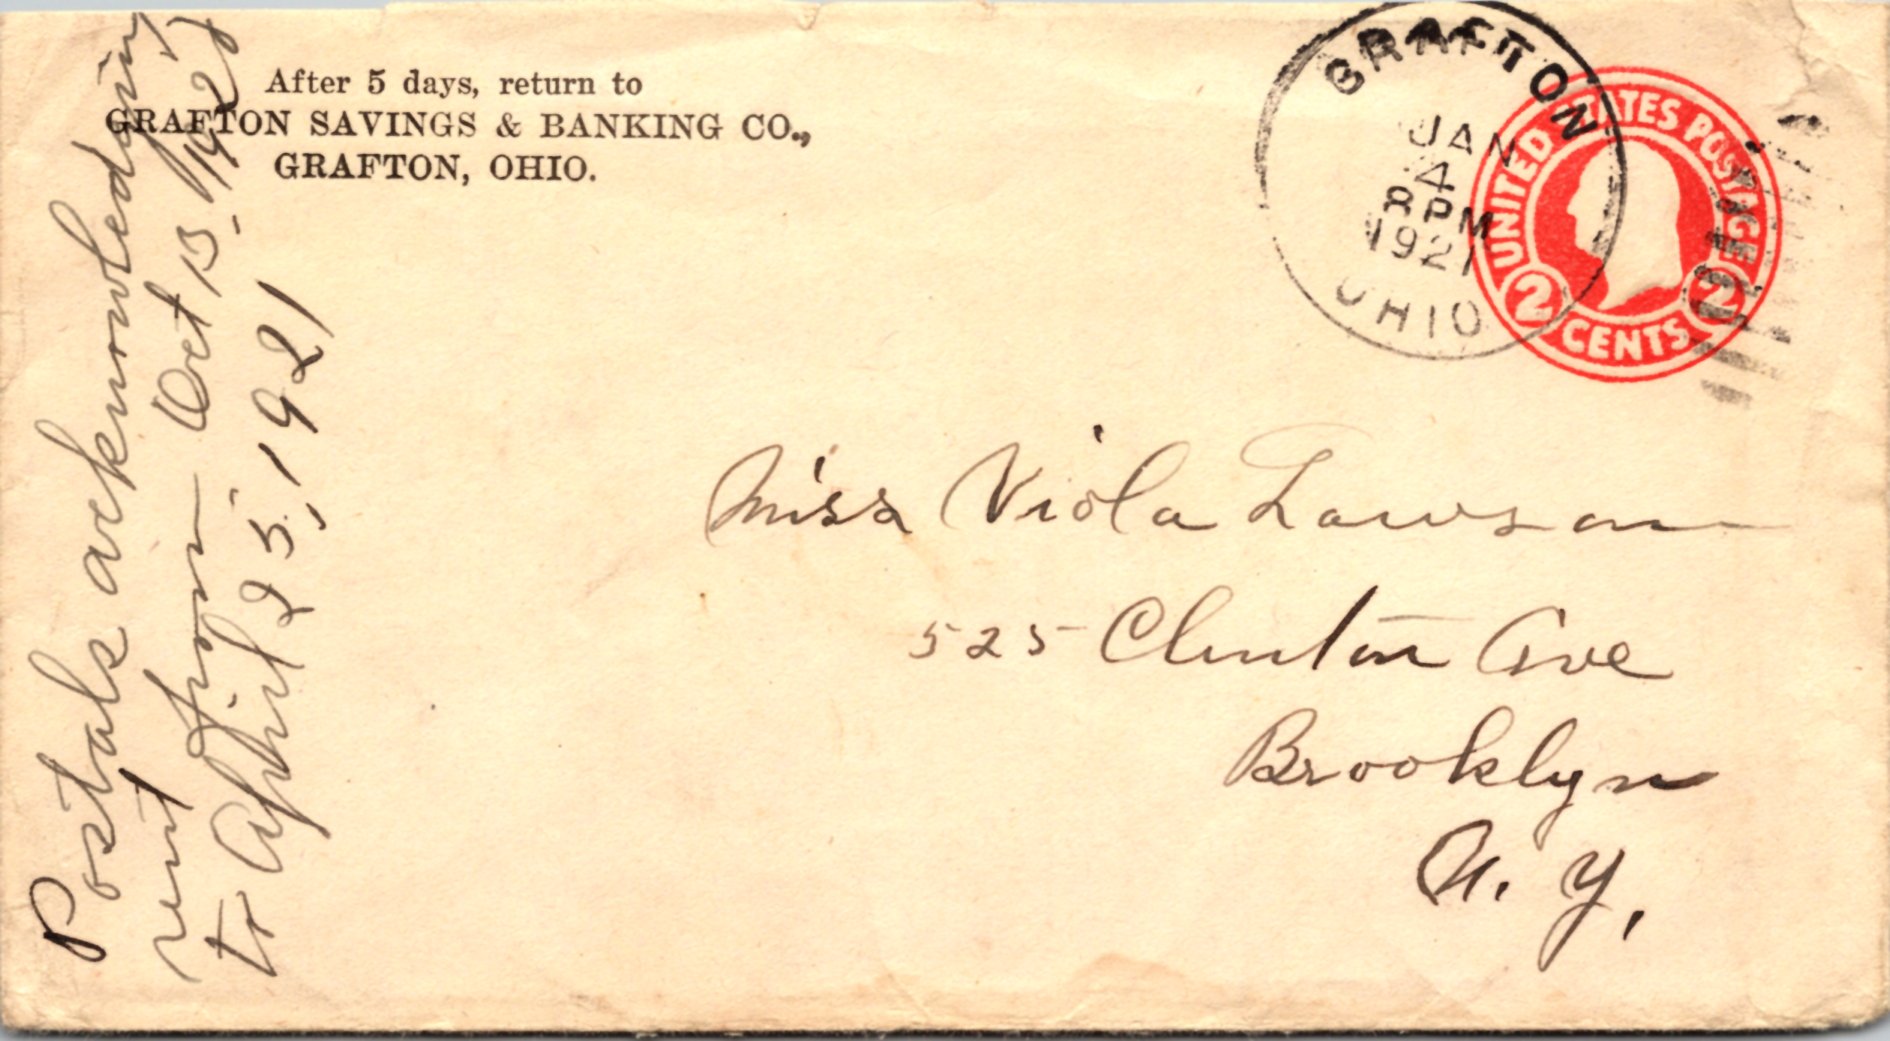 After 5 days, return to
GRAFTON SAVINGS & BANKING CO.,
GRAFTON, OHIO.
GRAFTON
JAN
4
8 PM
1921
OHIO
UNITED STATES POSTAGE
2 CENTS 2
Miss Viola Lawson
525 Clinton Ave
Brooklyn
N. Y.
Postals acknowledging
rent from Oct 13, 192
to April 25, 1921